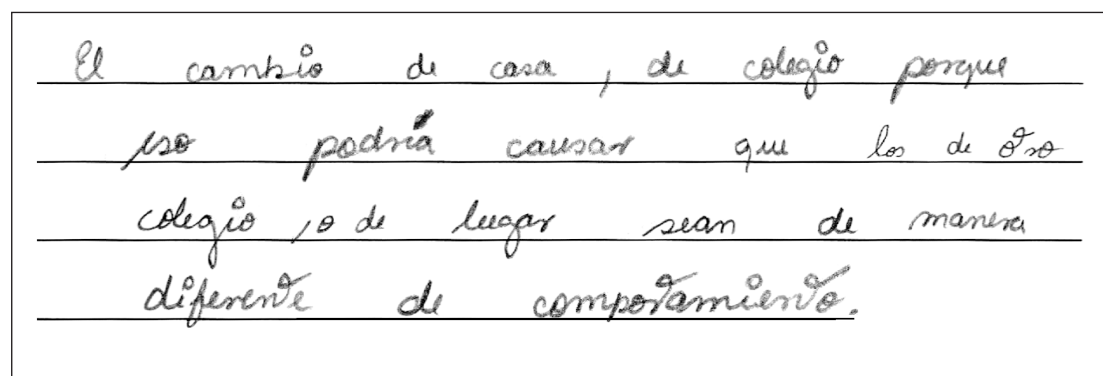 El cambio de casa, de colegio porque
eso podría causar que los de otro
colegio, o de lugar sean de manera
diferente de comportamiento.